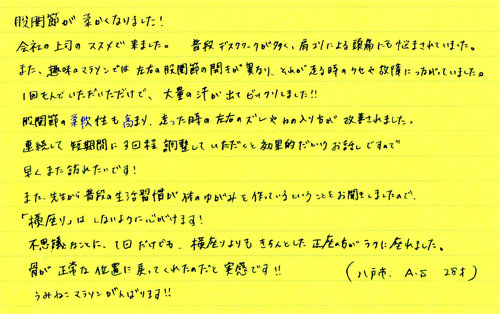 股関節が柔かくなりました!
会社の上司のススメで来ました。 普段デスクワークが多く、肩コリによる頭痛にも悩まされていました。
また、趣味のマラソンでは左右の股関節の開きが異なり、それが走る時のクセや故障につながっていました。
1回もんでいただいただけで、大量の汗が出てビックリしました!!
股関節の柔軟性も高まり、走った時の左右のズレや力の入り方が改善されました。
連続して短期間に3回程調整していただくと効果的だというお話しですので
早くまた訪れたいです!
また、先生から普段の生活習慣が体のゆがみを作っているということをお聞きしましたので、
「横座り」はしないように心がけます!
不思議なことに、1回だけでも、横座りよりもきちんとした正座の方がラクに座れました。
骨が正常な位置に戻ってくれたのだと実感です!! (八戸市. A.S 28才)
うみねこマラソンがんばります!!